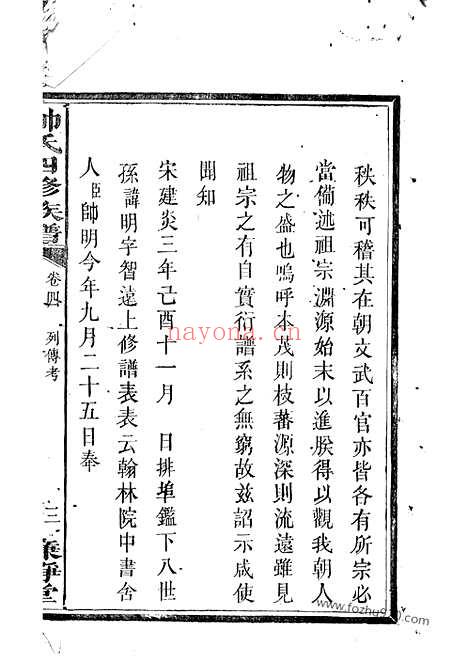 秩秩可稽其在朝文武百官亦皆各有所宗必
當備述祖宗淵源始末以進朕得以觀我朝人
物之盛也嗚呼本茂則枝蕃源深則流遠雖見
祖宗之有自實衍譜系之無窮故兹詔示咸使
聞知
宋建炎三年己酉十一月　日排埠鑑下八世
孫諱明字智遠上修譜表表云翰林院中書舍
人臣帥明今年九月二十五日奉
帥氏四修族譜
卷四
列傳考
nayona.cn
www.fozhu910.com